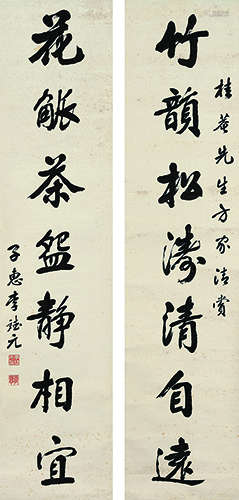 桂菴先生方家清賞
竹韻松濤清自遠
花觚茶盌靜相宜
子惠李元